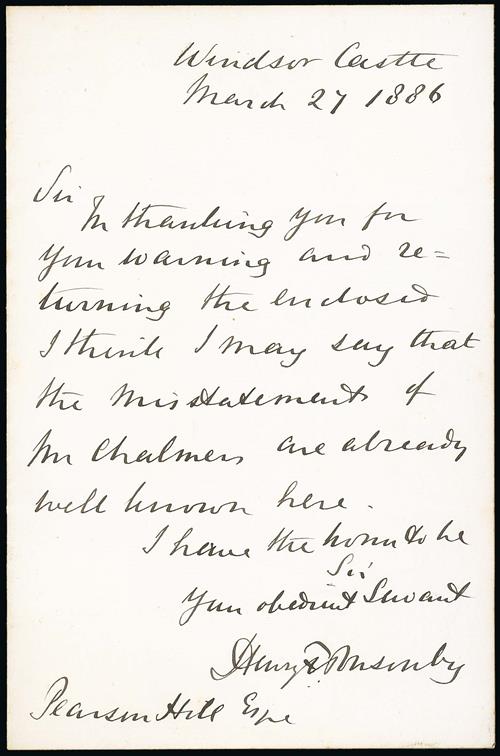 Windsor Castle
March 27 1886
Sir
In thanking you for
your warning and re=
turning the enclosed
I think I may say that
the misstatements of
Mr Chalmers are already
well known here.
I have the honour to be
Sir
Your obedient Servant
Henry F Ponsonby
Pearson Hill Esqre